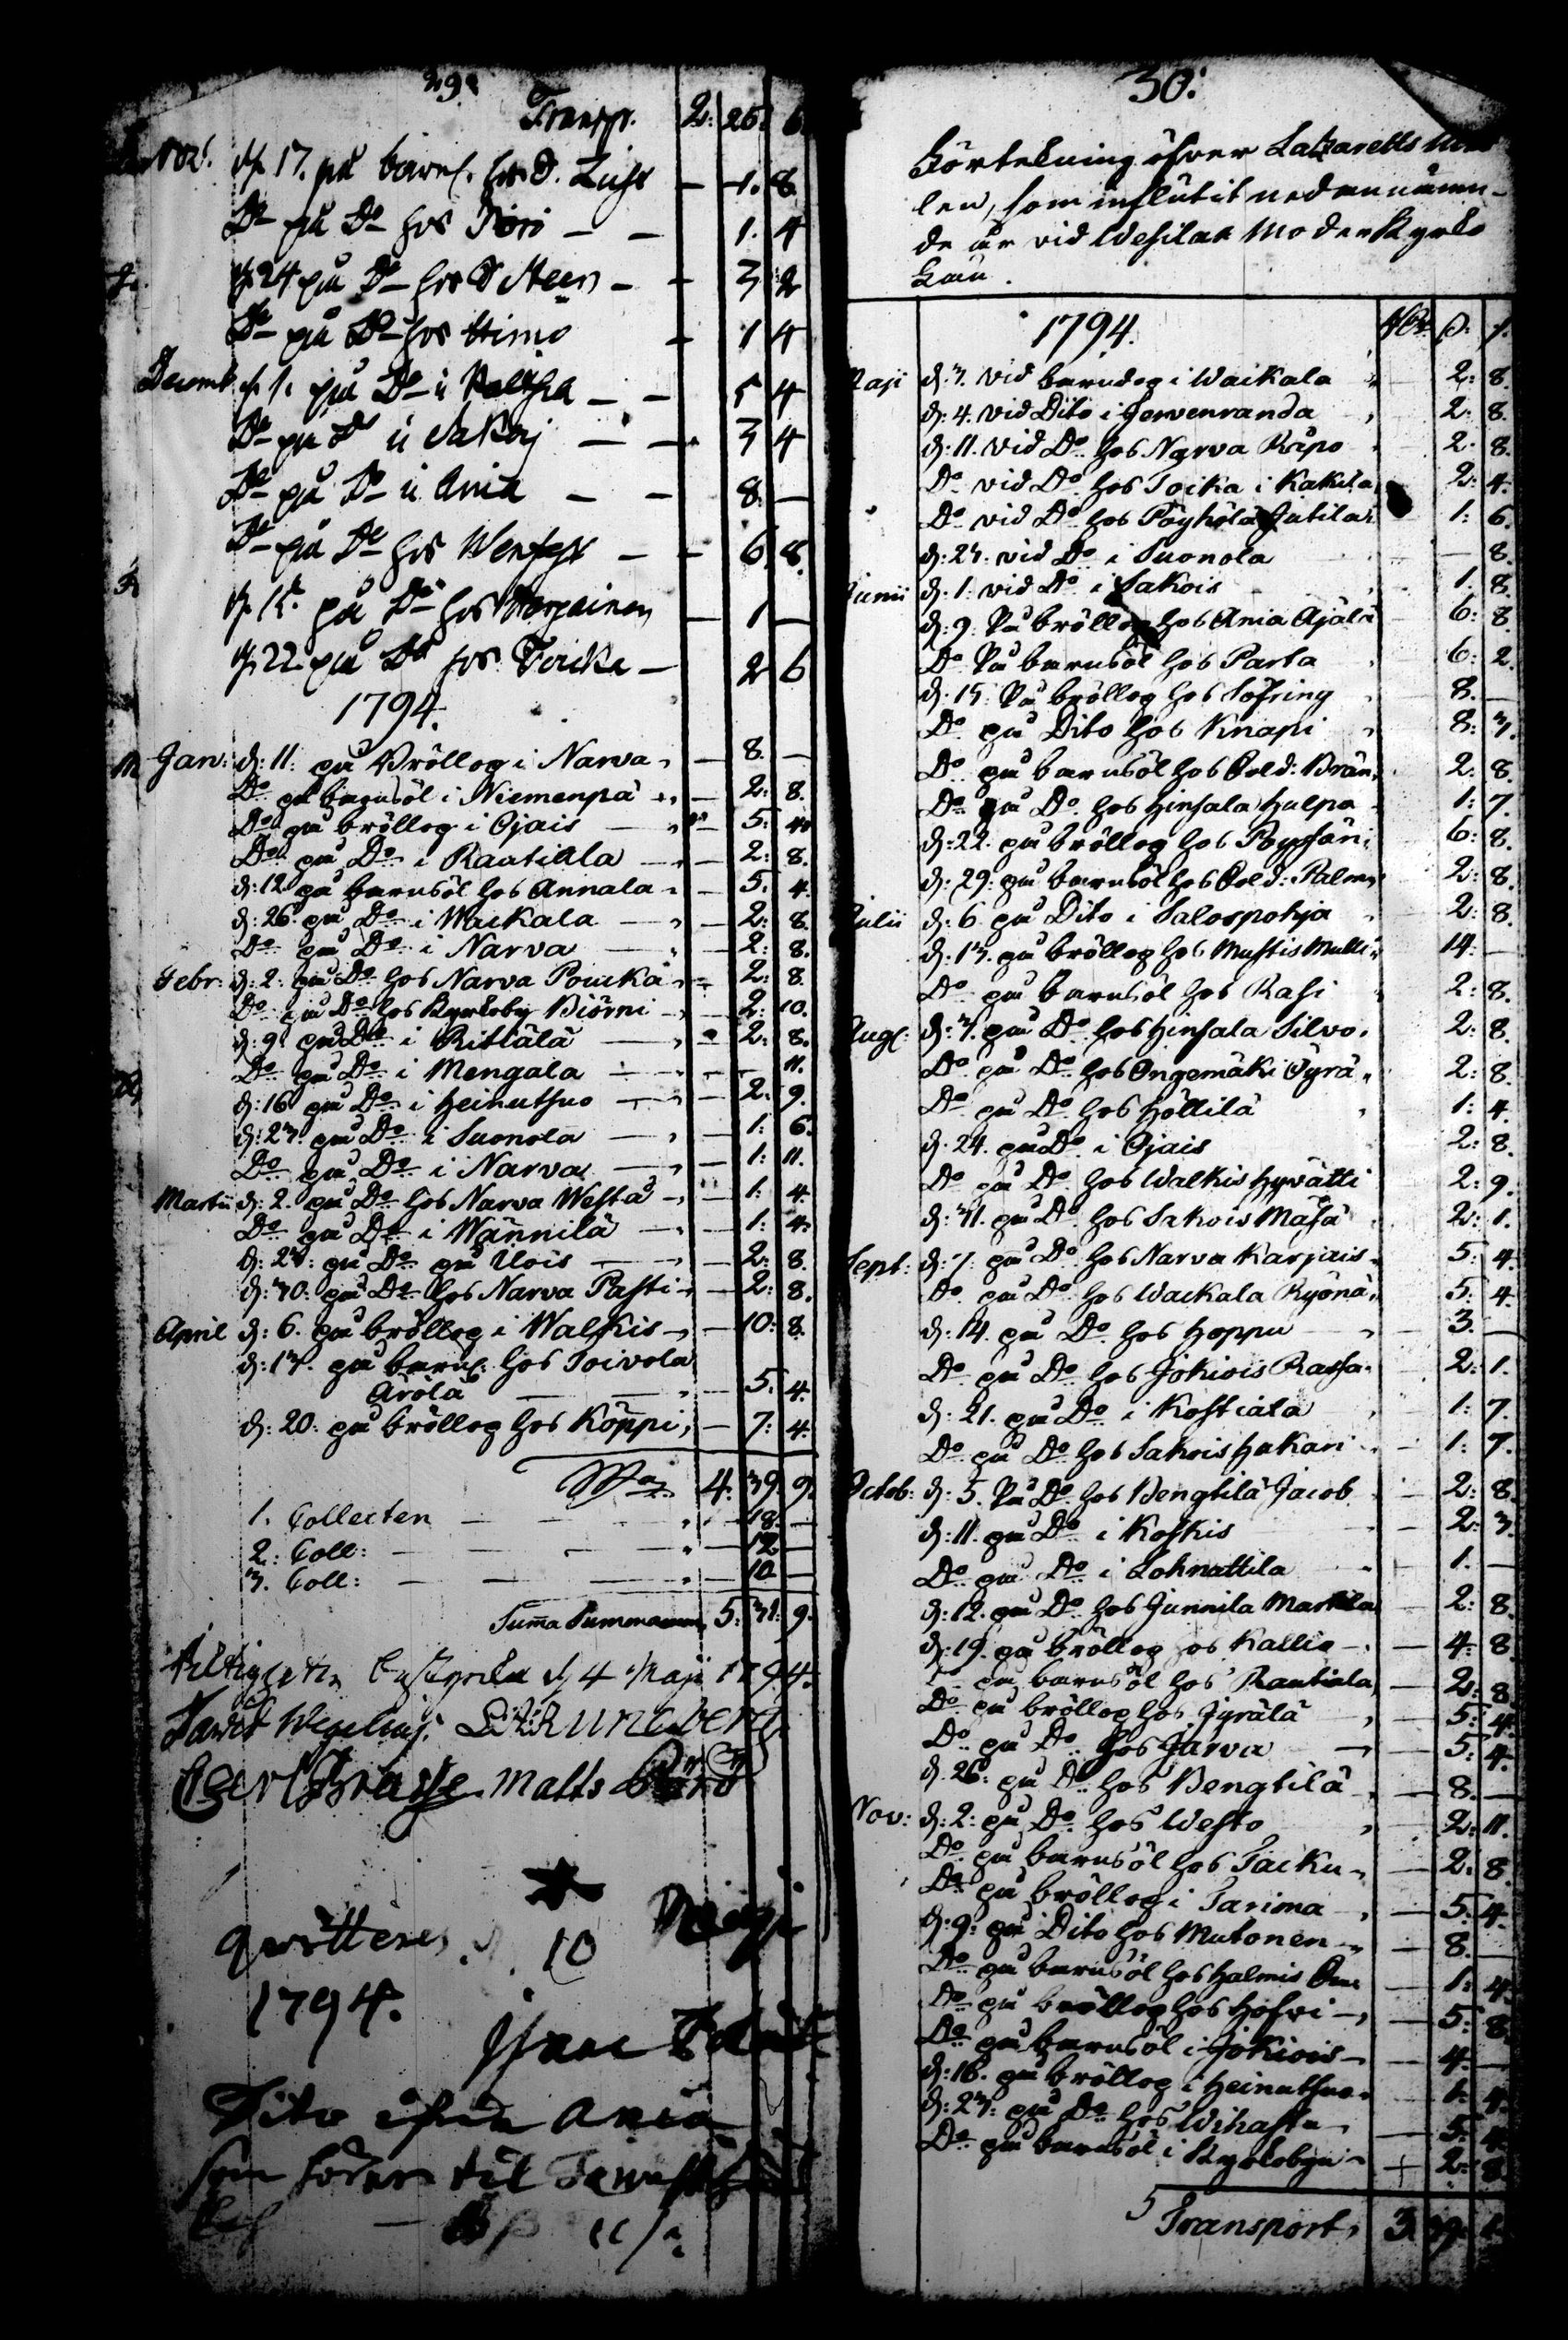 29.
Transp. 2: 25. 6.
Nov. d. 17. på barns. hos d. — 1. 8.
Do på Do hos — 1. 4
d. 24 på Do hos — 3 2
Do på Do hos Himo — 1 4
Decemb. d. 1. på Do i — 5 4
Do på Do i Sakoj — 3 4
Do på Do i Ania — 8. —
Do på Do hos — 6. 8.
d. på Do hos — 1 —
d. 22 på Do hos Toicka — 2 6
1794.
Jan: d: 11: på Bröllog i Narva — 8. —
Do på barnsöl i Niemenpä — 2: 8.
Do på bröllog i Ojais — 5: 4.
Do på Do i Rautiala — 2: 8.
d: 12 på barnsöl hos Annala — 5. 4.
d: 26. på Do i Wackala — 2: 8.
Do på Do i Narva — 2: 8.
Febr: d: 2: på Do hos Narva Pouckä — 2: 8.
Do på Do hos Kyrkoby Biörni — 2: 10.
d: 9: på Do i Rittälä — 2: 8.
Do på Do i Mengala — — 11.
d: 16 på Do i Heinuthuo — 2: 9.
d: 23. på Do i Suonola — 1: 6.
Do på Do i Narva — 1: 11.
Martii d: 2. på Do hos Narva Westä — 1: 4.
Do på Do i Wännilä — 1: 4.
d: 23: på Do på Ulois — 2: 8.
d: 30: på Do hos Narva Pasti — 2: 8.
April d: 6. på bröllog i Walkis — 10: 8.
d: 13. på barns. hos Toivola
Arölä — 5. 4.
d: 20: på bröllog hos Köppi, — 7: 4.
Sma 4. 39. 9.
1. Collecten — 18. —
2: Coll: — 12 —
3. Coll: — 10 —
Suma Summarum 5: 31: 9.
d. 4 Maji 1794.
Matts
qvitteres d. 10 Maji
1794.
Dito ifrån Ania
som föres til
30:
Förtekning öfver Lazaretts
len, som influtit nedannämn-
de år vid Wesilax Moderkyrko
1794.
Maji d: 3. vid barndog i Wackala 2: 8.
d: 4. vid Dito i Jervenranda 2: 8.
d: 11. vid Do hos Narva Räpo 2: 8.
Do vid Do hos Toicka i Kakila 2: 4.
Do vid Do hos Pöyhölä Jutila 1: 6.
d: 23. vid Do i Suonola — 8.
Junii d: 1: vid Do i Sakois 1. 8.
d: 9: På bröllog hos Ania Ajälä 6: 8.
Do På barnsöl hos Parta 6: 2.
d: 15: På bröllog hos Löfring 8. —
Do på Dito hos Knapi 8: 3.
Do på barnsöl hos Sold: Brän 2: 8.
Do på Do hos Hinsala Hulpo 1: 7.
d: 22. på bröllog hos 6: 8.
d: 29: på barnsöl hos Sold: Palm 2: 8.
Julii d: 6. på Dito i Salospohja 2: 8.
d: 13. på bröllog hos Mustis Mulli 14: —
Do på barnsöl hos Rasi 2: 8.
Aug: d: 3. på Do hos Hinsala Silvo 2: 8.
Do på Do hos Ongemäki Öyrä 2: 8.
Do på Do hos Höllilä 1: 4.
d: 24. på Do i Ojais 2: 8.
Do på Do hos Walkis Hyvätti 2: 9.
d: 31. på Do hos Sakois Mäsä 2: 1.
Sept: d: 7: på Do hos Narva Karjais 5: 4.
Do på Do hos Wackala Ryönä 5: 4.
d: 14. på Do hos Hoppu — 3. —
Do på Do hos Jokiois Rassa 2: 1.
d: 21. på Do i Kostiala 1: 7.
Do på Do hos Sakois Hakari — 1: 7.
Octob: d: 5. På Do hos Bengtilä Jacob — 2: 8.
d: 11. på Do i Koskis — 2: 3.
Do på Do i Lohnattila — 1. —
d: 12. på Do hos Junnila Markila — 2: 8.
d: 19. på bröllog hos Kallio — 4: 8.
Do på barnsöl hos Rautiala — 2: 8.
Do på bröllog hos Jyrälä — 5: 4.
Do på Do hos Jarva — 5: 4.
d. 26: på Do hos Bengtilä — 8. —
Nov: d: 2: på Do hos Westo — 2: 11.
Do på barnsöl hos Tacku — 2: 8.
Do på bröllog i Tarima — 5: 4.
d: 9: på Dito hos Mutonen — 8. —
Do på barnsöl hos Halmis — 1: 4.
Do på bröllog hos Hofvi — 5: 8.
Do på barnsöl i Jokiois — 4. —
d: 16. på bröllog i Heinuthuo — 1: 4.
d: 23: på Do hos Wihasta — 5: 4.
Do på barnsöl i Kyrkobyn — 2: 8.
Transport, 3. 39.